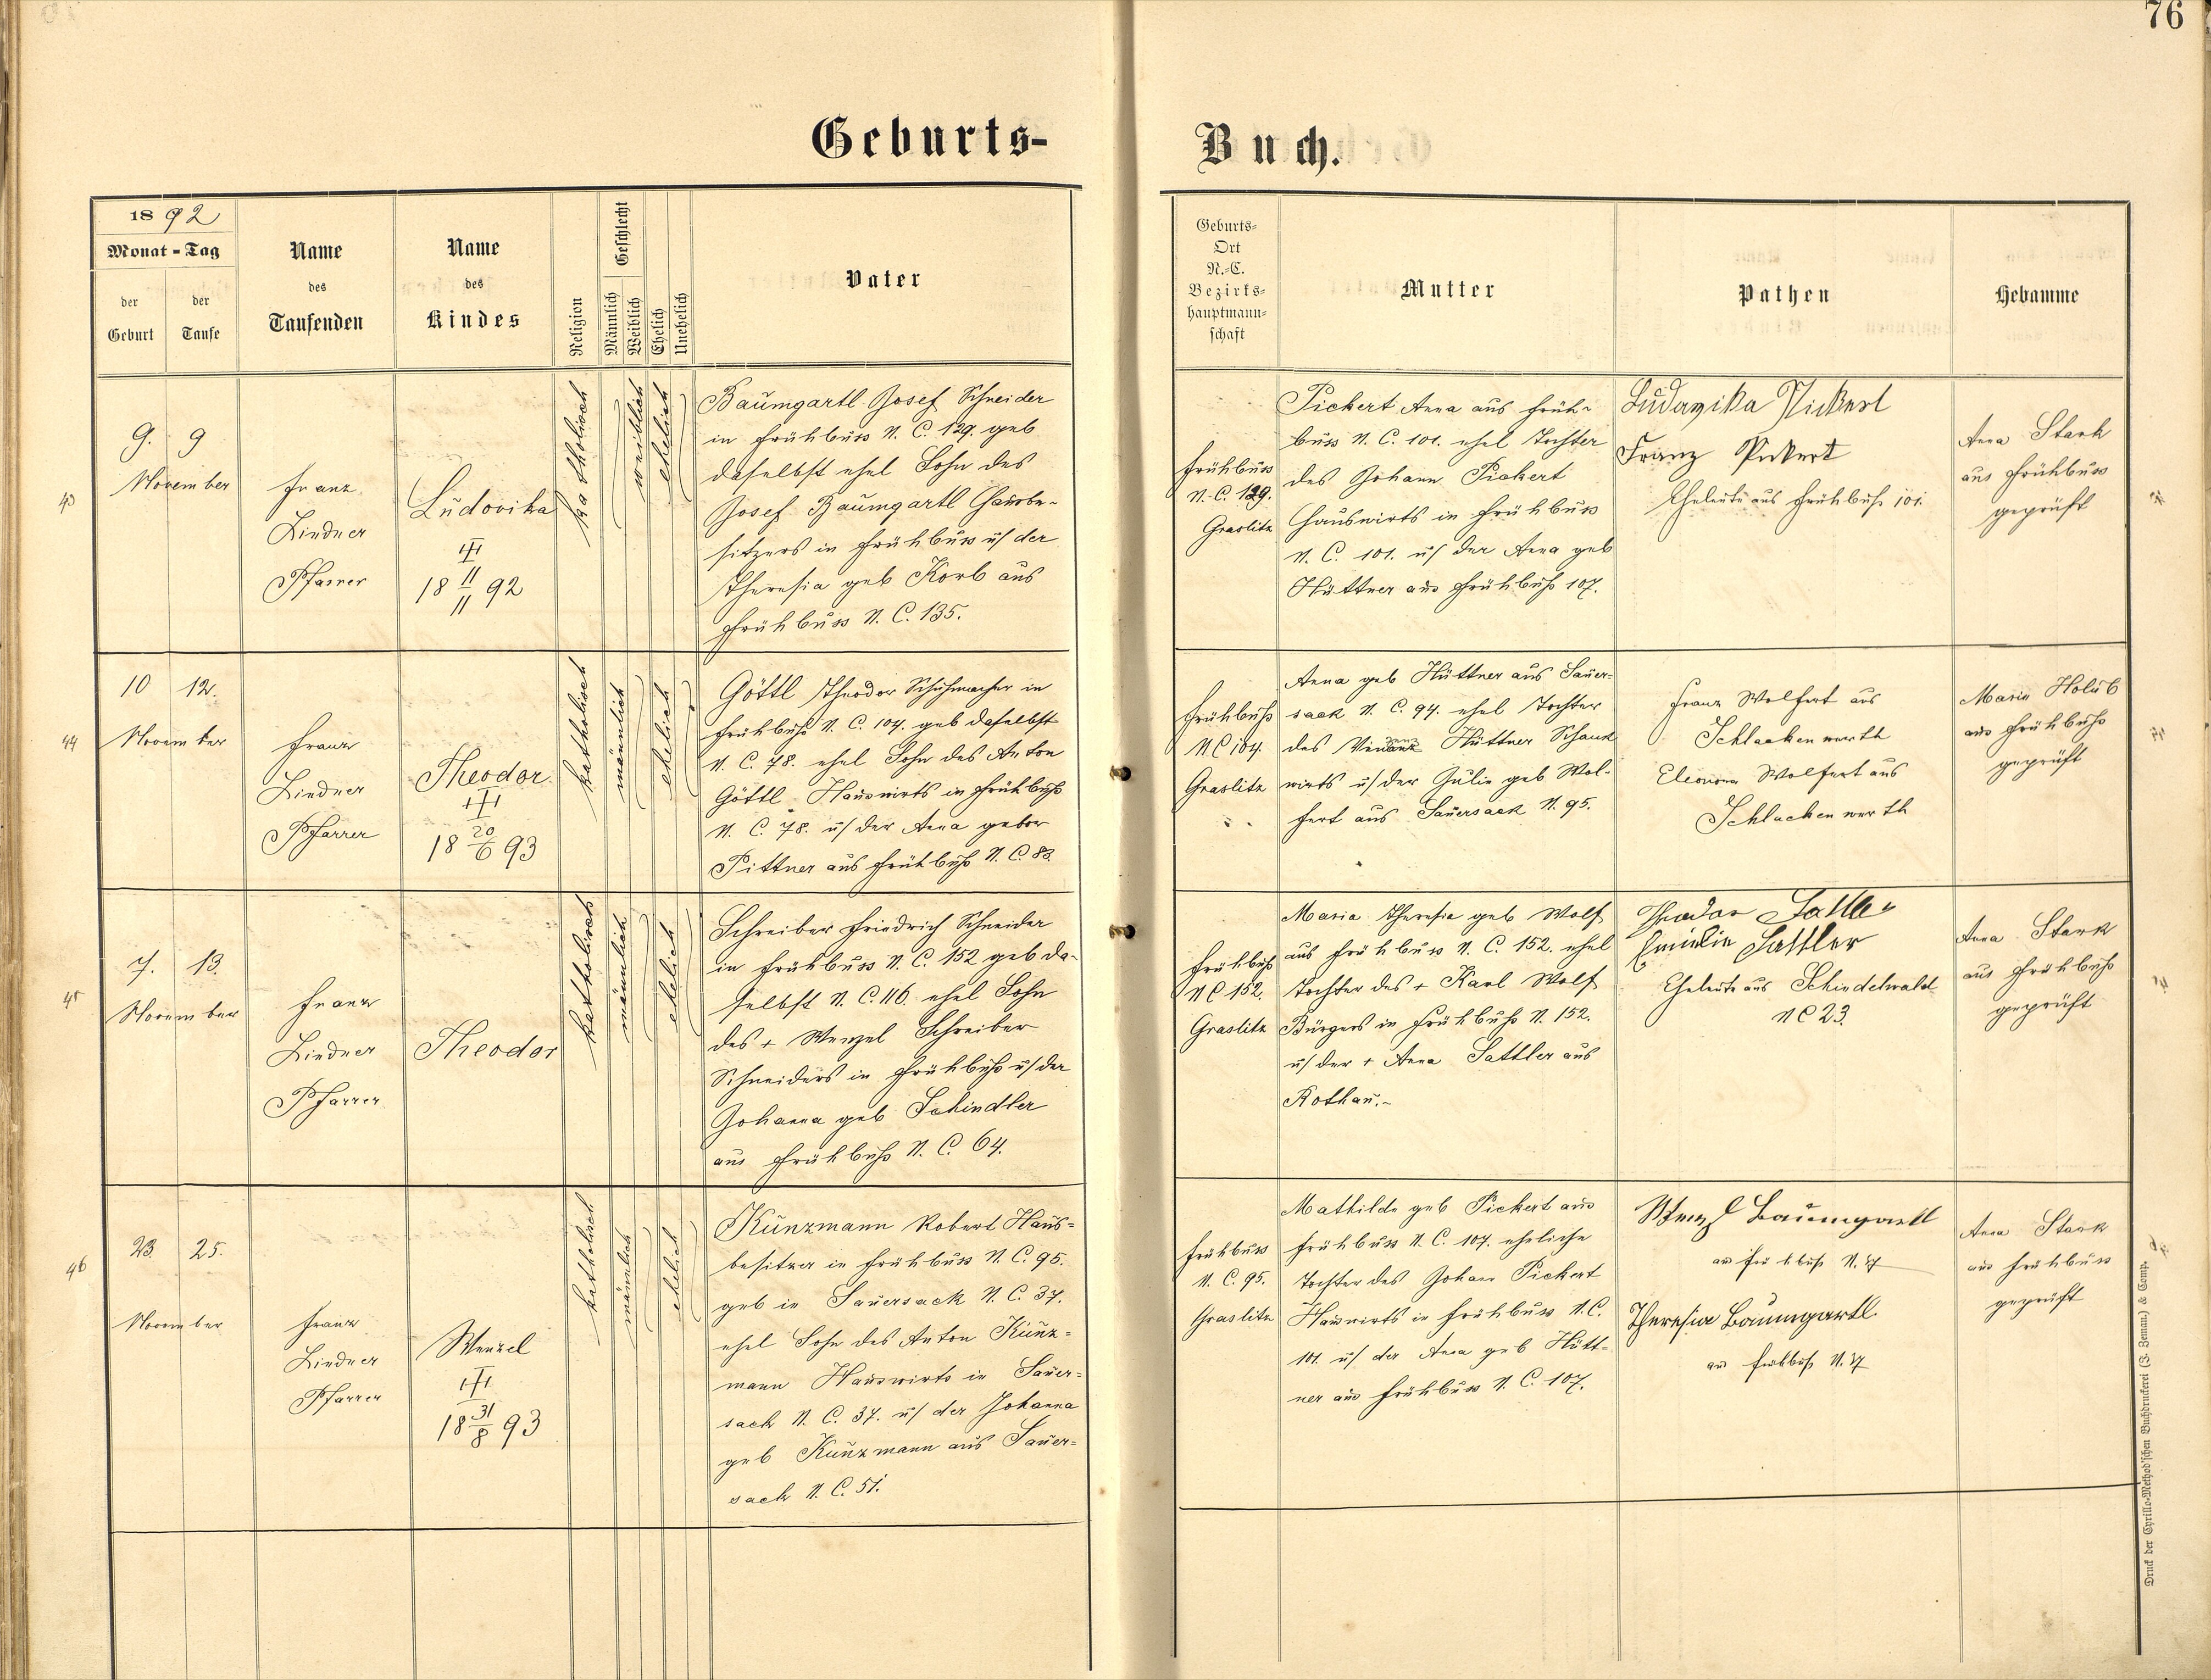 76
Geburts-
Buch.
1892
Monat - Tag
der Geburt
der Taufe
Name
des
Taufenden
Name
des
Kindes
Religion
Geschlecht
Männlich
Weiblich
Ehelich
Unehelich
Vater
Geburts-
Ort
N.-C.
Bezirks-
hauptmann-
schaft
Mutter
Pathen
Hebamme
43
9. 9
November
Franz
Lindner
Pfarrer
Ludovika
18 11/11 92
katholisch
weiblich
ehelich
Baumgartl Josef Schneider
in Frühbuss N. C. 129. geb
daselbst ehel Sohn des
Josef Baumgartl Hausbe-
sitzers in Frühbuss u/ der
Theresia geb Korb aus
Frühbuss N. C. 135.
Frühbuss
N.-C. 129.
Graslitz
Pickert Anna aus Früh-
buss N. C. 101. ehel Tochter
des Johann Pickert
Hauswirts in Frühbuss
N. C. 101. u/ der Anna geb
Hüttner aus Frühbuß 107.
Ludovika Pickert
Franz Pickert
Eheleute aus Frühbuß 101.
Anna Stark
aus Frühbuss
geprüft
44
10 12.
November
Franz
Lindner
Pfarrer
Theodor
18 20/6 93
katholisch
männlich
ehelich
Göttl Theodor Schuhmacher in
Frühbuß N. C. 104. geb daselbst
N. C. 78. ehel Sohn des Anton
Göttl Hauswirts in Frühbuß
N. C. 78. u/ der Anna gebor
Pittner aus Frühbuß N. C. 83
Frühbuß
N C 104.
Graslitz
Anna geb Hüttner aus Sauer-
sack N. C. 94. ehel Tochter
des Hüttner Schank
wirts u/ der Julie geb Wol-
fert aus Sauersack N. 95.
Franz Wolfert aus
Schlackenwerth
Eleonora Wolfert aus
Schlackenwerth
Maria Holub
aus Frühbuß
geprüft
45
7. 13.
November
Franz
Lindner
Pfarrer
Theodor
katholisch
männlich
ehelich
Schreiber Friedrich Schneider
in Frühbuss N. C. 152 geb da-
selbst N. C. 116. ehel Sohn
des + Wenzel Schreiber
Schneiders in Frühbuß u/ der
Johanna geb Schindler
aus Frühbuß N. C. 64.
Frühbuß
N C 152.
Graslitz
Maria Theresia geb Wolf
aus Frühbuss N. C. 152. ehel
Tochter des + Karl Wolf
Bürgers in Frühbuß N. 152.
u/ der + Anna Sattler aus
Rothau.-
Theodor Sattler
Emilie Sattler
Eheleute aus Schindelwald
N C 23.
Anna Stark
aus Frühbuß
geprüft
46
23 25.
November
Franz
Lindner
Pfarrer
Wenzel
18 31/8 93
katholisch
männlich
ehelich
Kunzmann Robert Haus-
besitzer in Frühbuss N. C. 95.
geb in Sauersack N. C. 37.
ehel Sohn des Anton Kunz-
mann Hauswirts in Sauer-
sack N. C. 37. u/ der Johanna
geb Kunzmann aus Sauer-
sack N. C. 51.
Frühbuss
N. C. 95.
Graslitz
Mathilde geb Pickert aus
Frühbuss N. C. 107. eheliche
Tochter des Johan Pickert
Hauswirts in Frühbuss N. C.
101. u/ der Anna geb Hütt-
ner aus Frühbuss N. C. 107.
Wenzl Baumgartl
aus Frühbuß N.
Theresia Baumgartl
aus Frühbuß N.
Anna Stark
aus Frühbuss
geprüft
Druck der Cyrillo-Method'schen Buchdruckerei (J. Zeman) & Comp.